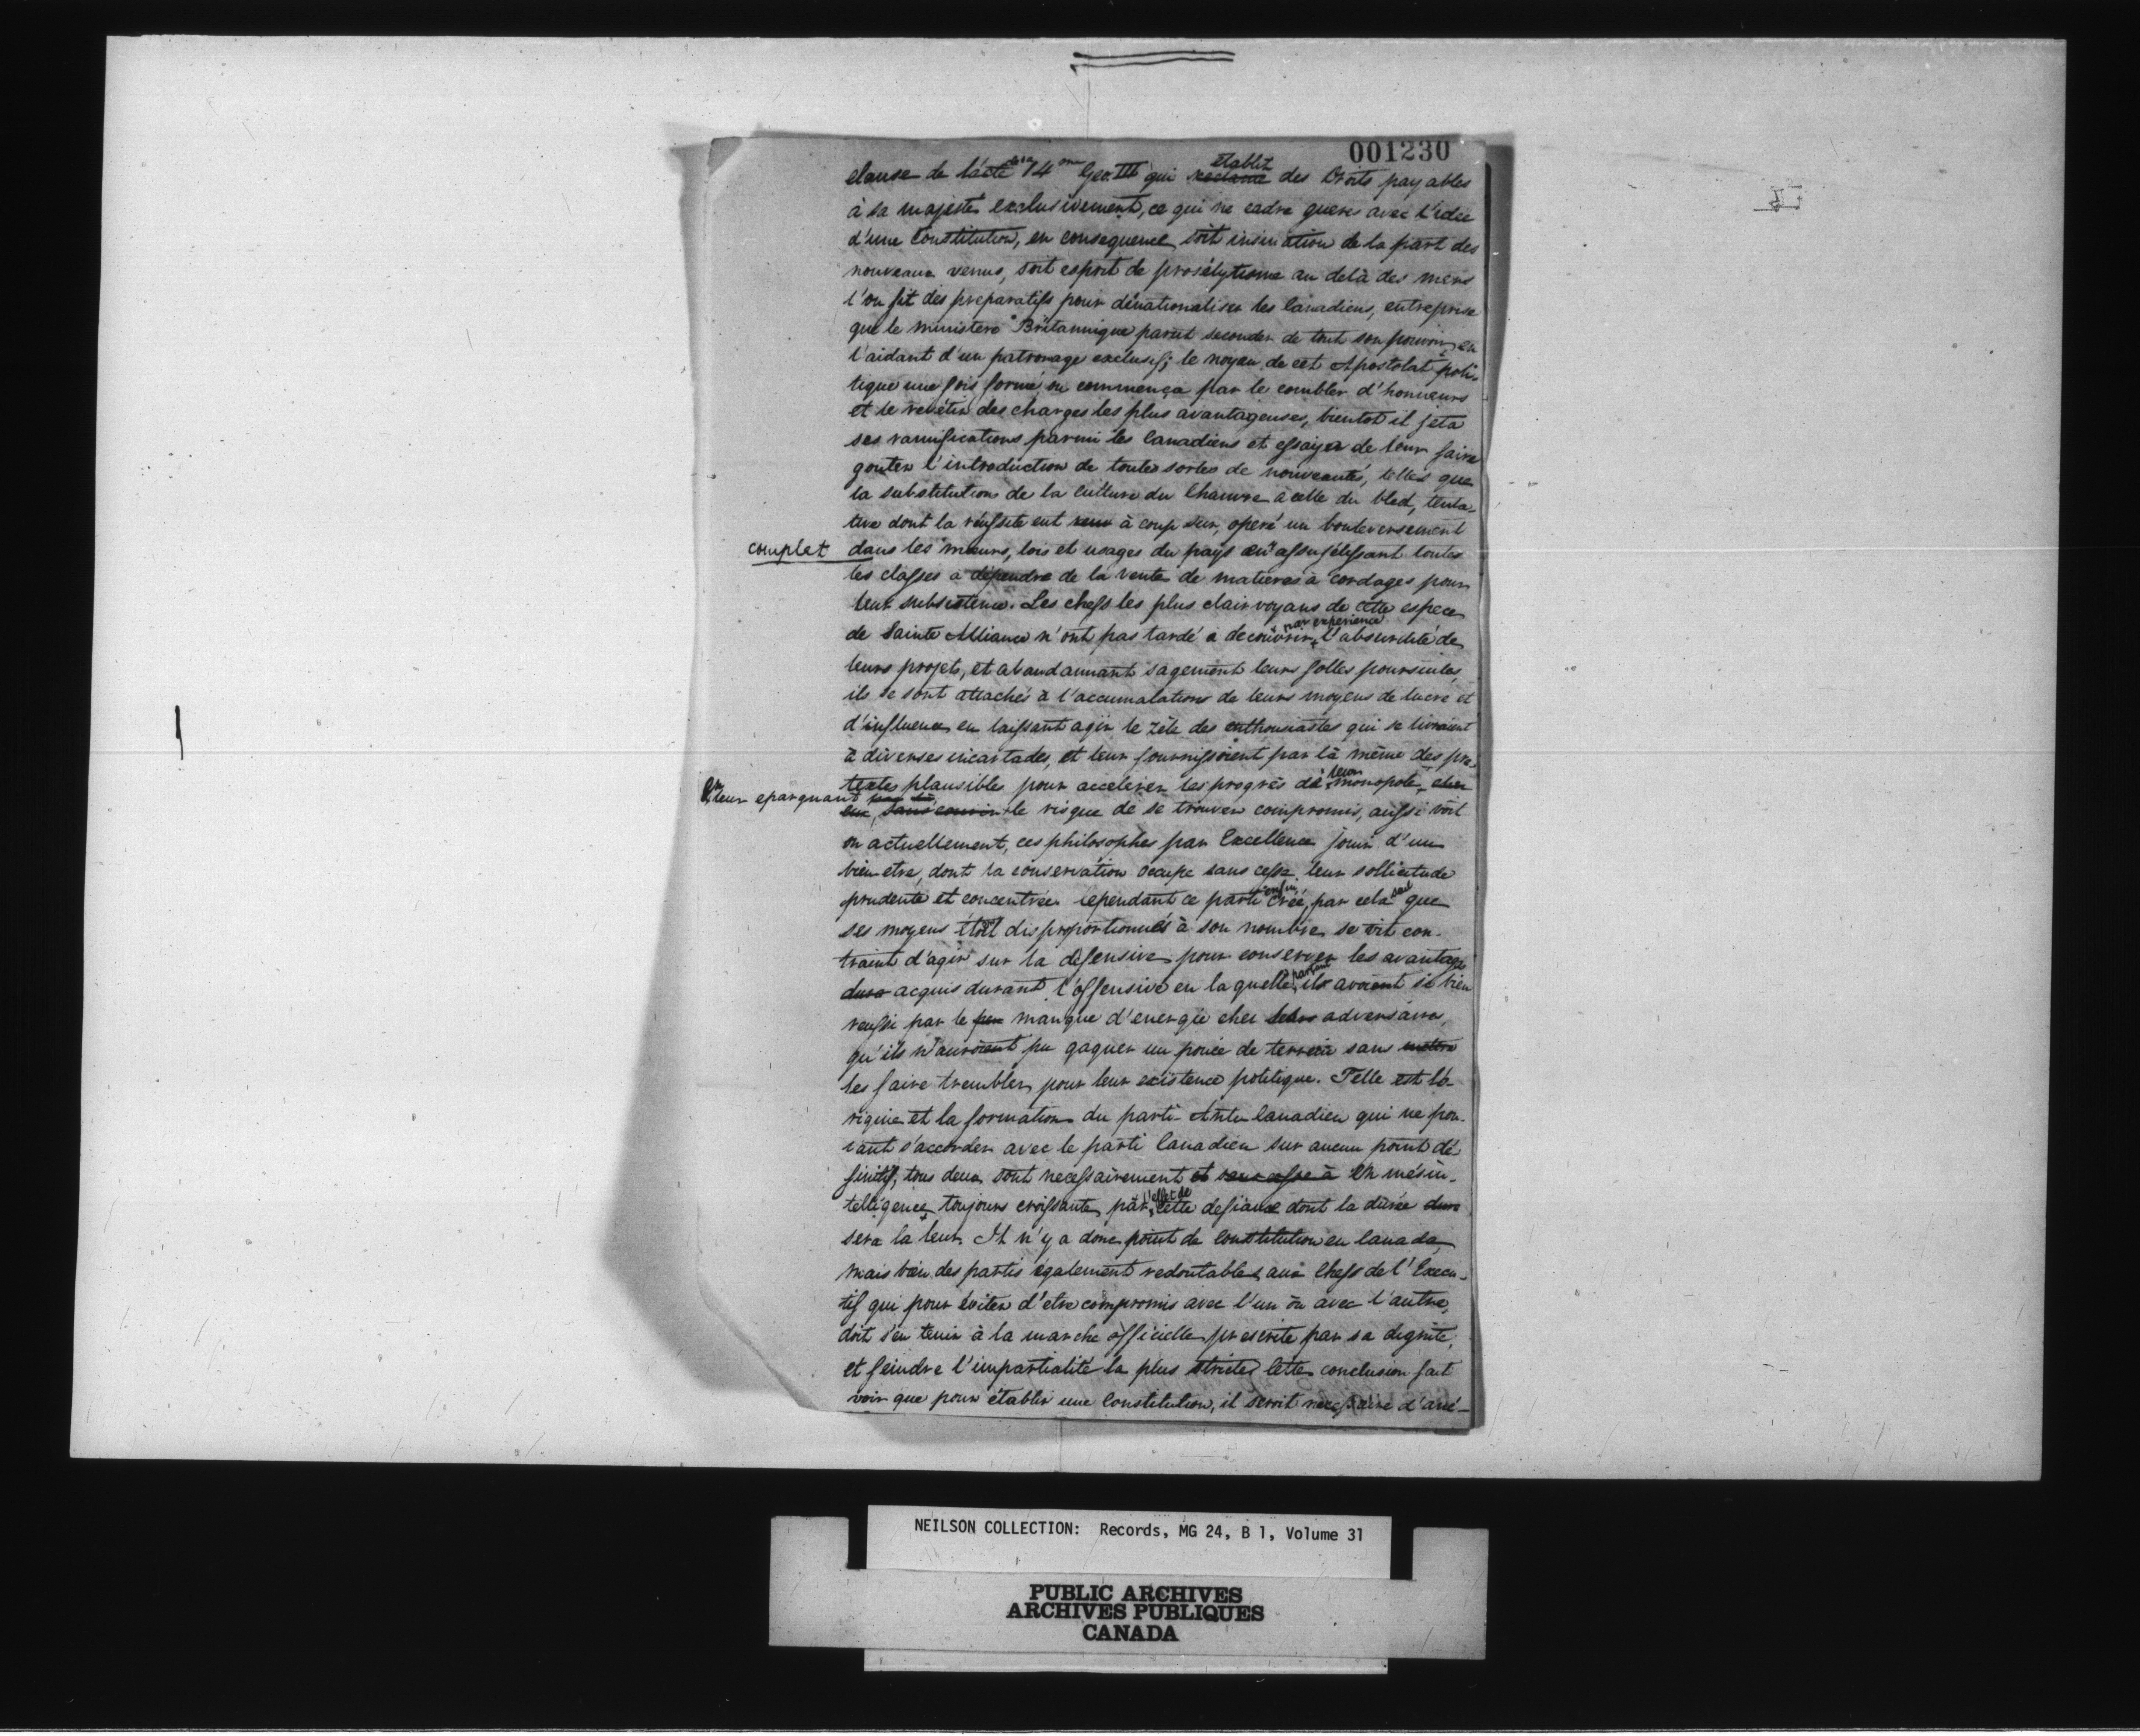 001230
clause de l'acte de la 14me Geo. III qui reclame établit des Droits payables
à sa majesté exclusivement, ce qui ne cadre gueres avec l'idée
d'une Constitution, en consequence soit insinuation de la part des
nouveaux venus, soit esprit de prosélytisme au delà des mers
l'on fit des preparatifs pour dénationaliser les Canadiens, entreprise
que le ministere Britannique parut seconder de tout son pouvoir, en
l'aidant d'un patronage exclusif; le noyau de cet Apostolat poli-
tique une fois formé on commença par le combler d'honneurs
et le revêtir des charges les plus avantageuses, bientot il jeta
ses ramifications parmi les Canadiens et essaya de leur faire
gouter l'introduction de toutes sortes de nouveautés, telles que
la substitution de la culture du Chanvre a celle du bled, tenta-
tive dont la réussite eut à coup sur, operé un bouleversement
complet dans les mœurs, lois et usages du pays en assujétissant toutes
les classes a dépendre de la vente de matieres à cordages pour
leur subsistence. Les chefs les plus clairvoyans de cette espece
de Sainte Alliance n'ont pas tardé a decouvrir par experience l'absurdité de
leurs projets, et abandannant sagement leurs folles poursuites,
ils se sont attachés à l'accumalation de leurs moyens de lucre et
d'influence en laissant agir le zèle des enthousiastes qui se livraient
à diverses incartades, et leur fournissoient par là même des pre-
textes plausibles pour accelerer les progrès de leur monopole, chez
En leur epargnant par là,
eux, sans courir le risque de se trouver compromis, aussi voit
on actuellement, ces philosophes par Excellence jouir d'un
bien etre, dont la conservation occupe sans cesse leur sollicitude
prudente et concentrée. Cependant ce parti enfin créé, par cela seul que
ses moyens étoit disproportionnés à son nombre se vit con-
traint d'agir sur la défensive pour conserver les avantages
dura acquis durant l'offensive en laquelle partant ils avoient si bien
reussi par le peu manque d'energie chez leurs adversaires,
qu'ils n'auroient pu gagner un pouce de terrein sans mettre
les faire trembler pour leur existence politique. Telle est l'o-
rigine et la formation du parti Anti Canadien qui ne pou-
vant s'accorder avec le parti Canadien sur aucun point dé-
finitif, tous deux sont necessairement et sans cesse à en mésin-
telligence toujours croissante, par l'effet de cette defiance dont la durée dura
sera la leur. Il n'y a donc point de Constitution en Canada,
mais bien des partis également redoutables aux Chefs de l'Execu-
tif qui pour éviter d'etre compromis avec l'un ou avec l'autre,
doit s'en tenir à la marche officielle prescrite par sa dignité,
et feindre l'impartialité la plus stricte. Cette conclusion fait
voir que pour établir une Constitution, il seroit necessaire d'ané-
NEILSON COLLECTION: Records, MG 24, B 1, Volume 31
PUBLIC ARCHIVES
ARCHIVES PUBLIQUES
CANADA